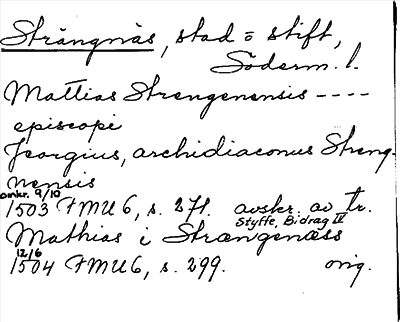 Strängnäs, stad o stift,
Söderm. l.
Mattias Strengenensis ----
episcopi
Jeorgius, archidiaconus Streng-
nensis
omkr. 9/10
1503 FMU 6, s. 271. avskr. av tr.
Styffe, Bidrag IV
Mathias i Strængenæss
12/6
1504 FMU 6, s. 299. orig.